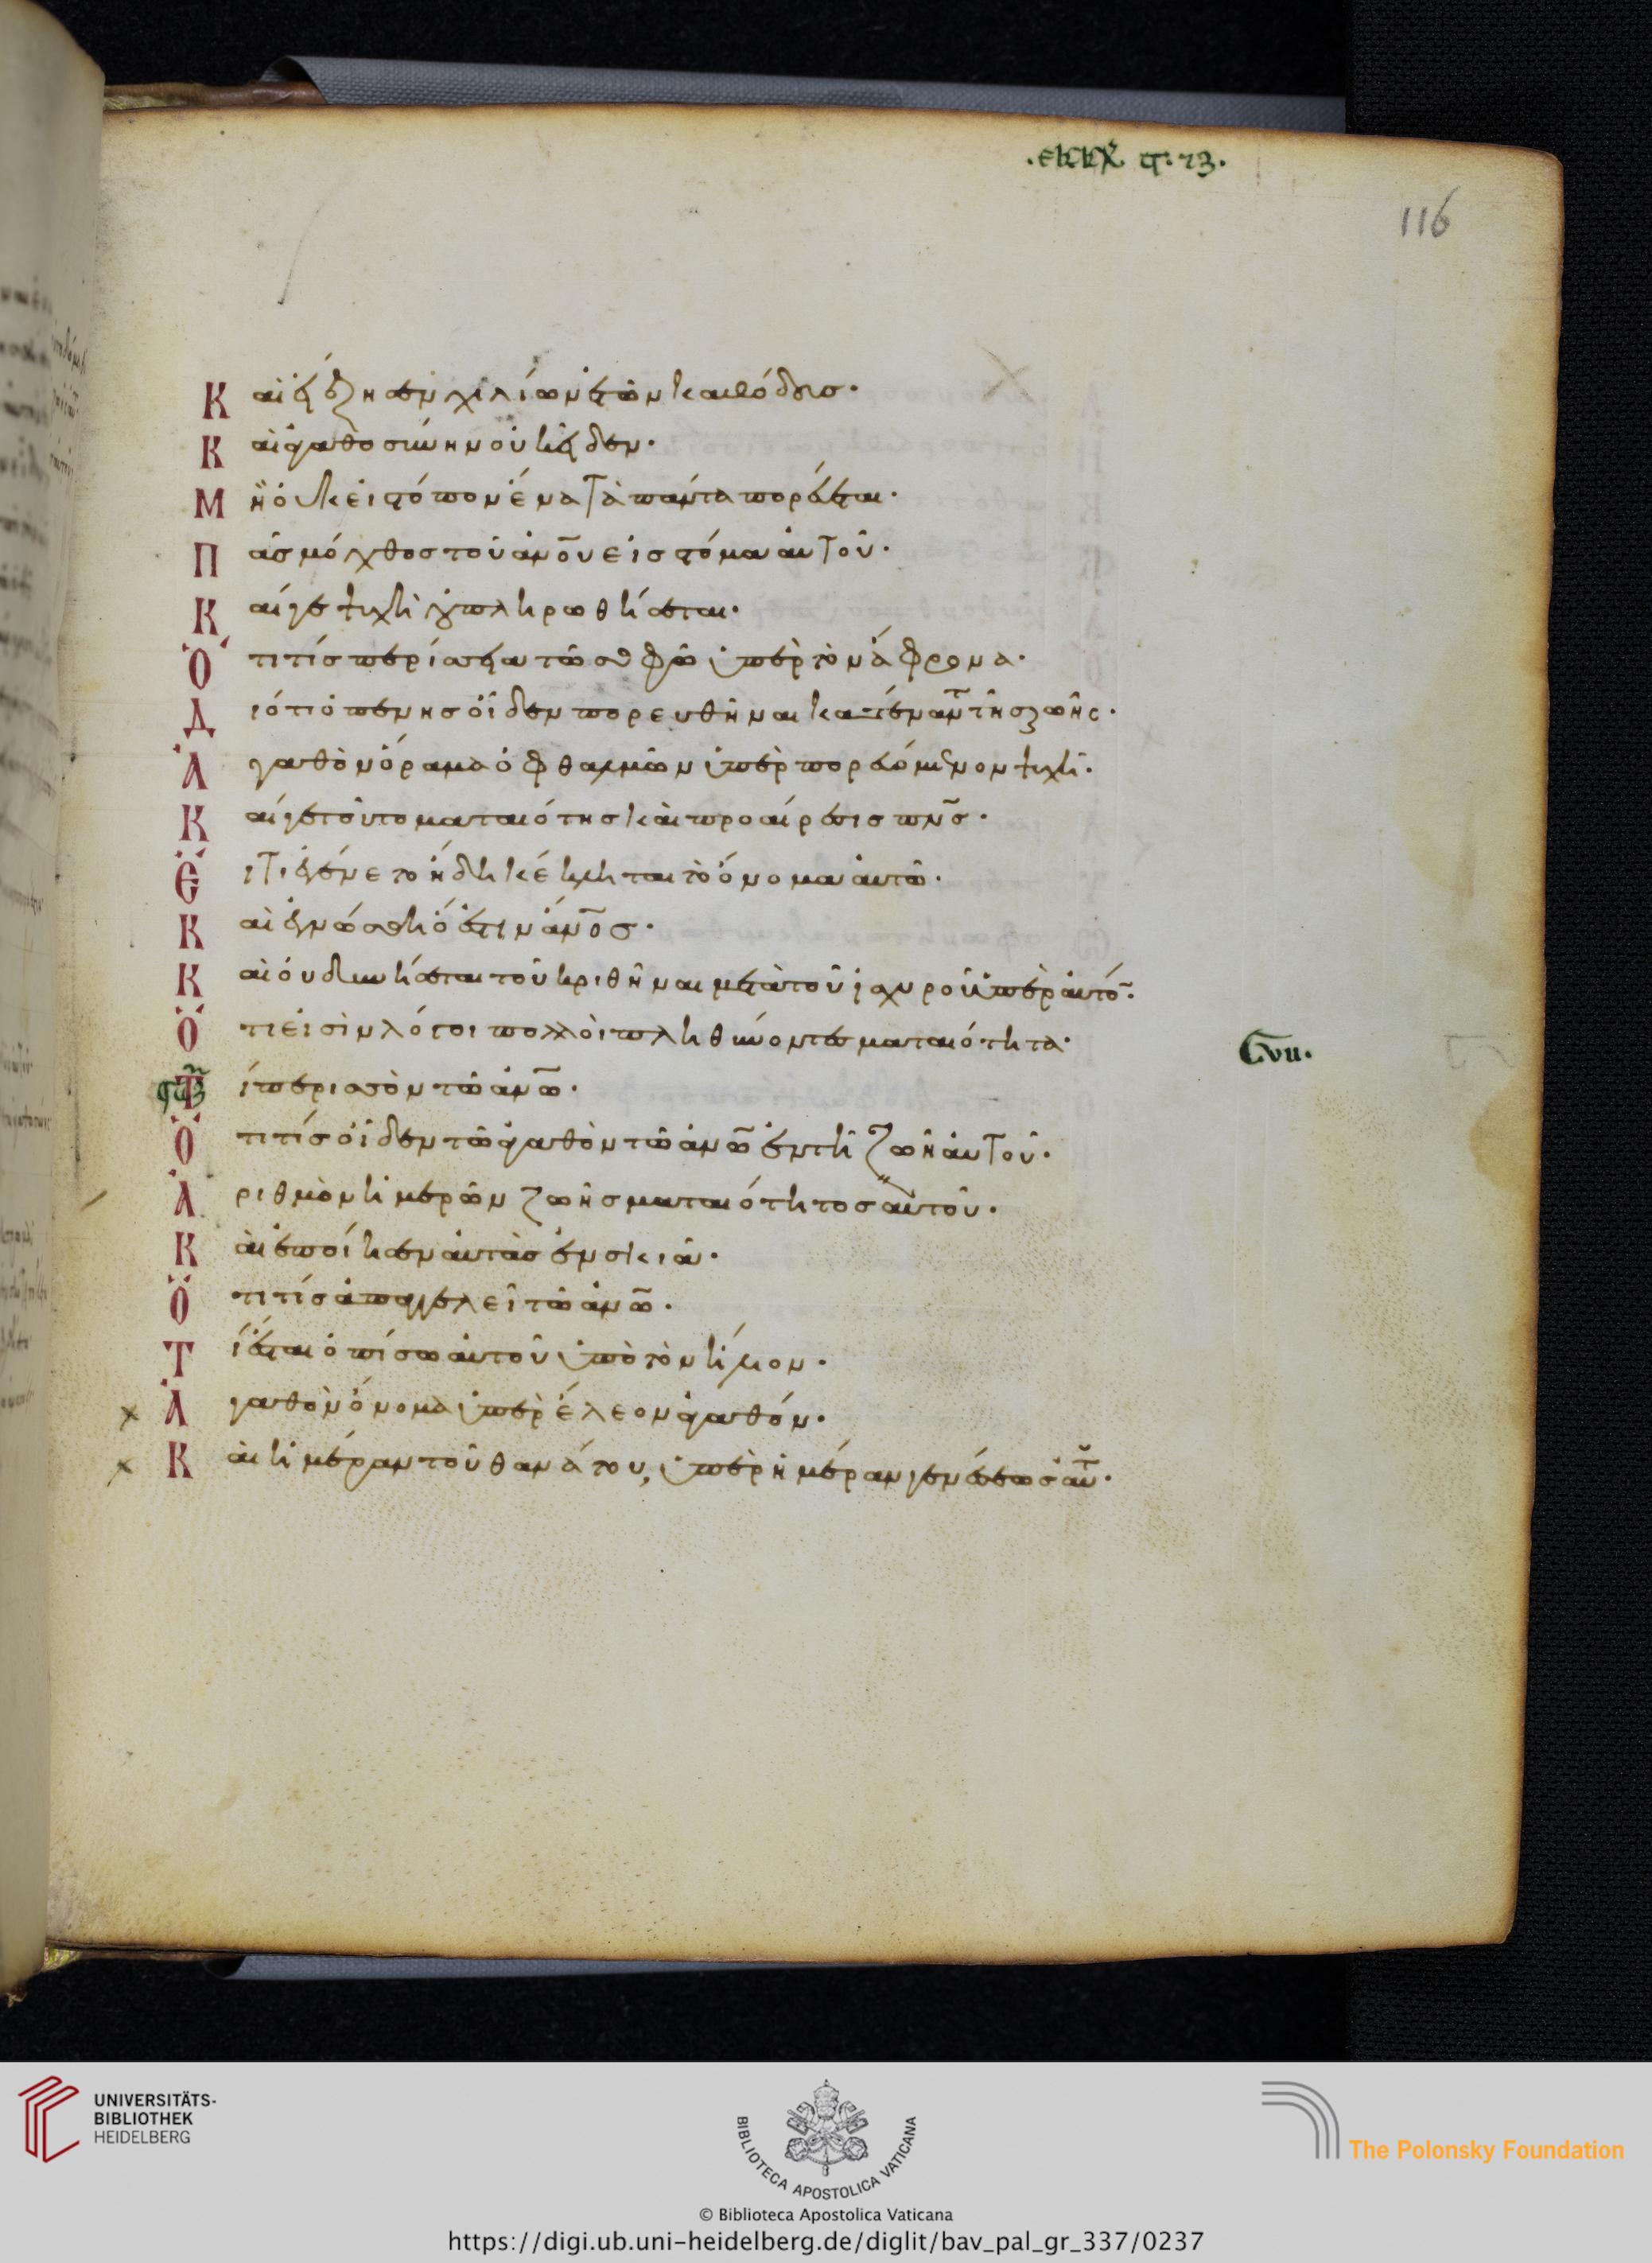 116
Καὶ ἔζησεν χιλίων ἐτῶν καθόδους·
Καὶ ἀγαθοσύνην οὐκ εἶδεν·
Μὴ οὐκ εἰς τόπον ἕνα τὰ πάντα πορεύεται·
Πᾶς μόχθος τοῦ ἀν̅ου εἰς στόμα αὐτοῦ·
Καί γε ψυχὴ οὐ πληρωθήσεται·
Ὅτι τίς περισσεία τῶ σοφῶ ὑπὲρ τὸν ἄφρονα·
Διότι ὁ πένης οἶδεν πορευθῆναι κατέναντι τῆς ζωῆς·
Ἀγαθὸν ὅραμα ὀφθαλμῶν ὑπὲρ πορευόμενον ψυχῆ·
Καί γε τοῦτο ματαιότης καὶ προαίρεσις πν̅ς·
Εἴ τι ἐγένετο ἤδη κέκληται τὸ ὄνομα αὐτῶ·
Καὶ ἐγνώσθη ὅ ἐστιν ἄν̅ος·
Καὶ οὐ δυνήσεται τοῦ κριθῆναι μετὰ τοῦ ἰσχυροῦ ὑπὲρ αὐτό·
Ὅτι εἰσὶν λόγοι πολλοὶ πληθύνοντες ματαιότητα·
Τί περισσὸν τῶ ἀν̅ω·
Ὅτι τίς οἶδεν τῶ ἀγαθὸν τῶ ἀν̅ω ἐν τῆ ζωῆ αὐτοῦ·
Ἀριθμὸν ἡμερῶν ζωῆς ματαιότητος αὐτοῦ·
Καὶ ἐποίησεν αὐτὰς ἐν σκιᾶ·
Ὅτι τίς ἀπαγγελεῖ τῶ ἀν̅ω·
Τί ἔσται ὀπίσω αὐτοῦ ὑπὸ τὸν ἥλιον·
Ἀγαθὸν ὄνομα ὑπὲρ ἔλεον ἀγαθόν·
Καὶ ἡμέραν τοῦ θανάτου, ὑπὲρ ἡμέραν γενέσεως αὐτ·
C vii.
UNIVERSITÄTS-
BIBLIOTHEK
HEIDELBERG
BIBLIOTECA APOSTOLICA VATICANA
The Polonsky Foundation
© Biblioteca Apostolica Vaticana
https://digi.ub.uni-heidelberg.de/diglit/bav_pal_gr_337/0237